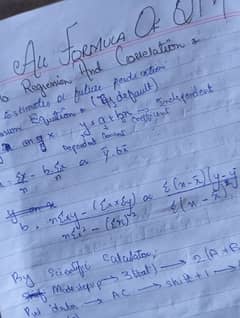 All FORMULA OF QTM
Regression And Correlation :
Estimates or future prediction
Equation : (By default)
y = a + bx Independent
Dependent coefficient
a = Σy/n - b Σx/n or ȳ - bx̄
b = nΣxy - (Σx Σy) / nΣx² - (Σx)² or Σ(x-x̄)(y-ȳ) / Σ(x-x̄)
By Scientific Calculator
Mode setup → 3(stat) → 2(A+B
Put data → AC → shift + 1 →